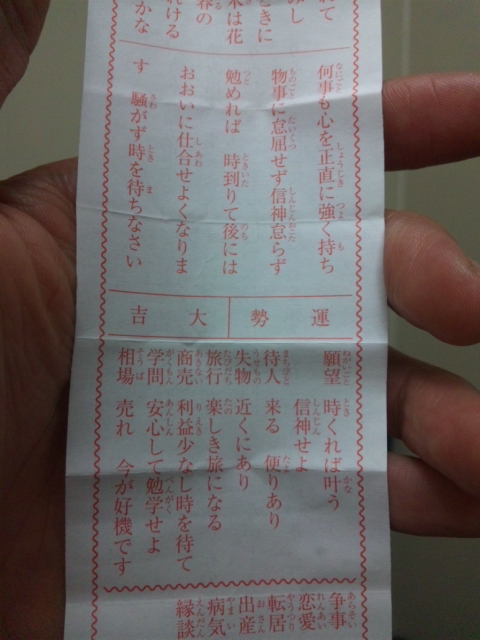 れて
みし
ときに
木は花
春の
れける
かな
何事も心を正直に強く持ち
物事に怠屈せず信神怠らず
勉めれば 時到りて後には
おおいに仕合せよくなりま
す 騒がず時を待ちなさい
運勢 大吉
願望 時くれば叶う
信神せよ
待人 来る 便りあり
失物 近くにあり
旅行 楽しき旅になる
商売 利益少なし時を待て
学問 安心して勉学せよ
相場 売れ 今が好機です
争事
恋愛
転居
出産
病気
縁談